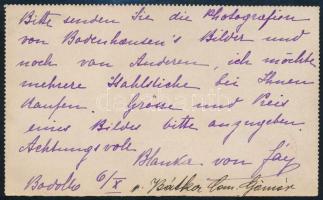 Bitte senden Sie die Photografien
von Bodenhausen's Bilder und
noch von Anderen, ich möchte
mehrere Stahlstiche bei Ihnen
kaufen. Grösse und Preis
eines Bildes bitte anzugeben.
Achtungsvoll
Blanka von Fáy
Bodolló 6/X p. Bátka Com. Gömör